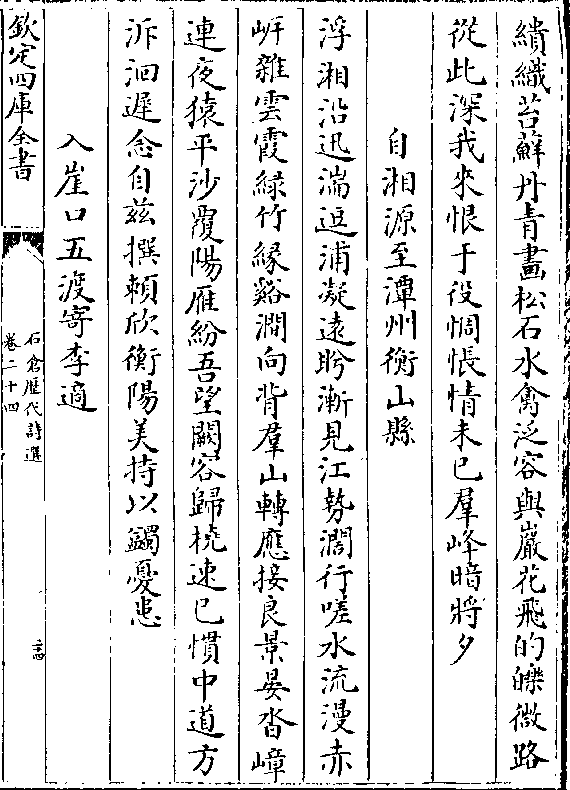 繢織苔蘚丹青畫松石水禽泛容與巖花飛的皪微路
從此深我來恨于役惆悵情未已羣峰暗將夕
自湘源至潭州衡山縣
浮湘沿迅湍逗浦凝遠盻漸見江勢濶行嗟水流漫赤
岍雜雲霞綠竹緣谿澗向背羣山轉應接良景晏沓嶂
連夜猿平沙覆陽雁紛吾望闕客歸橈速已慣中道方
泝洄遲念自茲撰賴欣衡陽美持以蠲憂患
入崖口五渡寄李適
欽定四庫全書
石倉歴代詩選
卷二十四